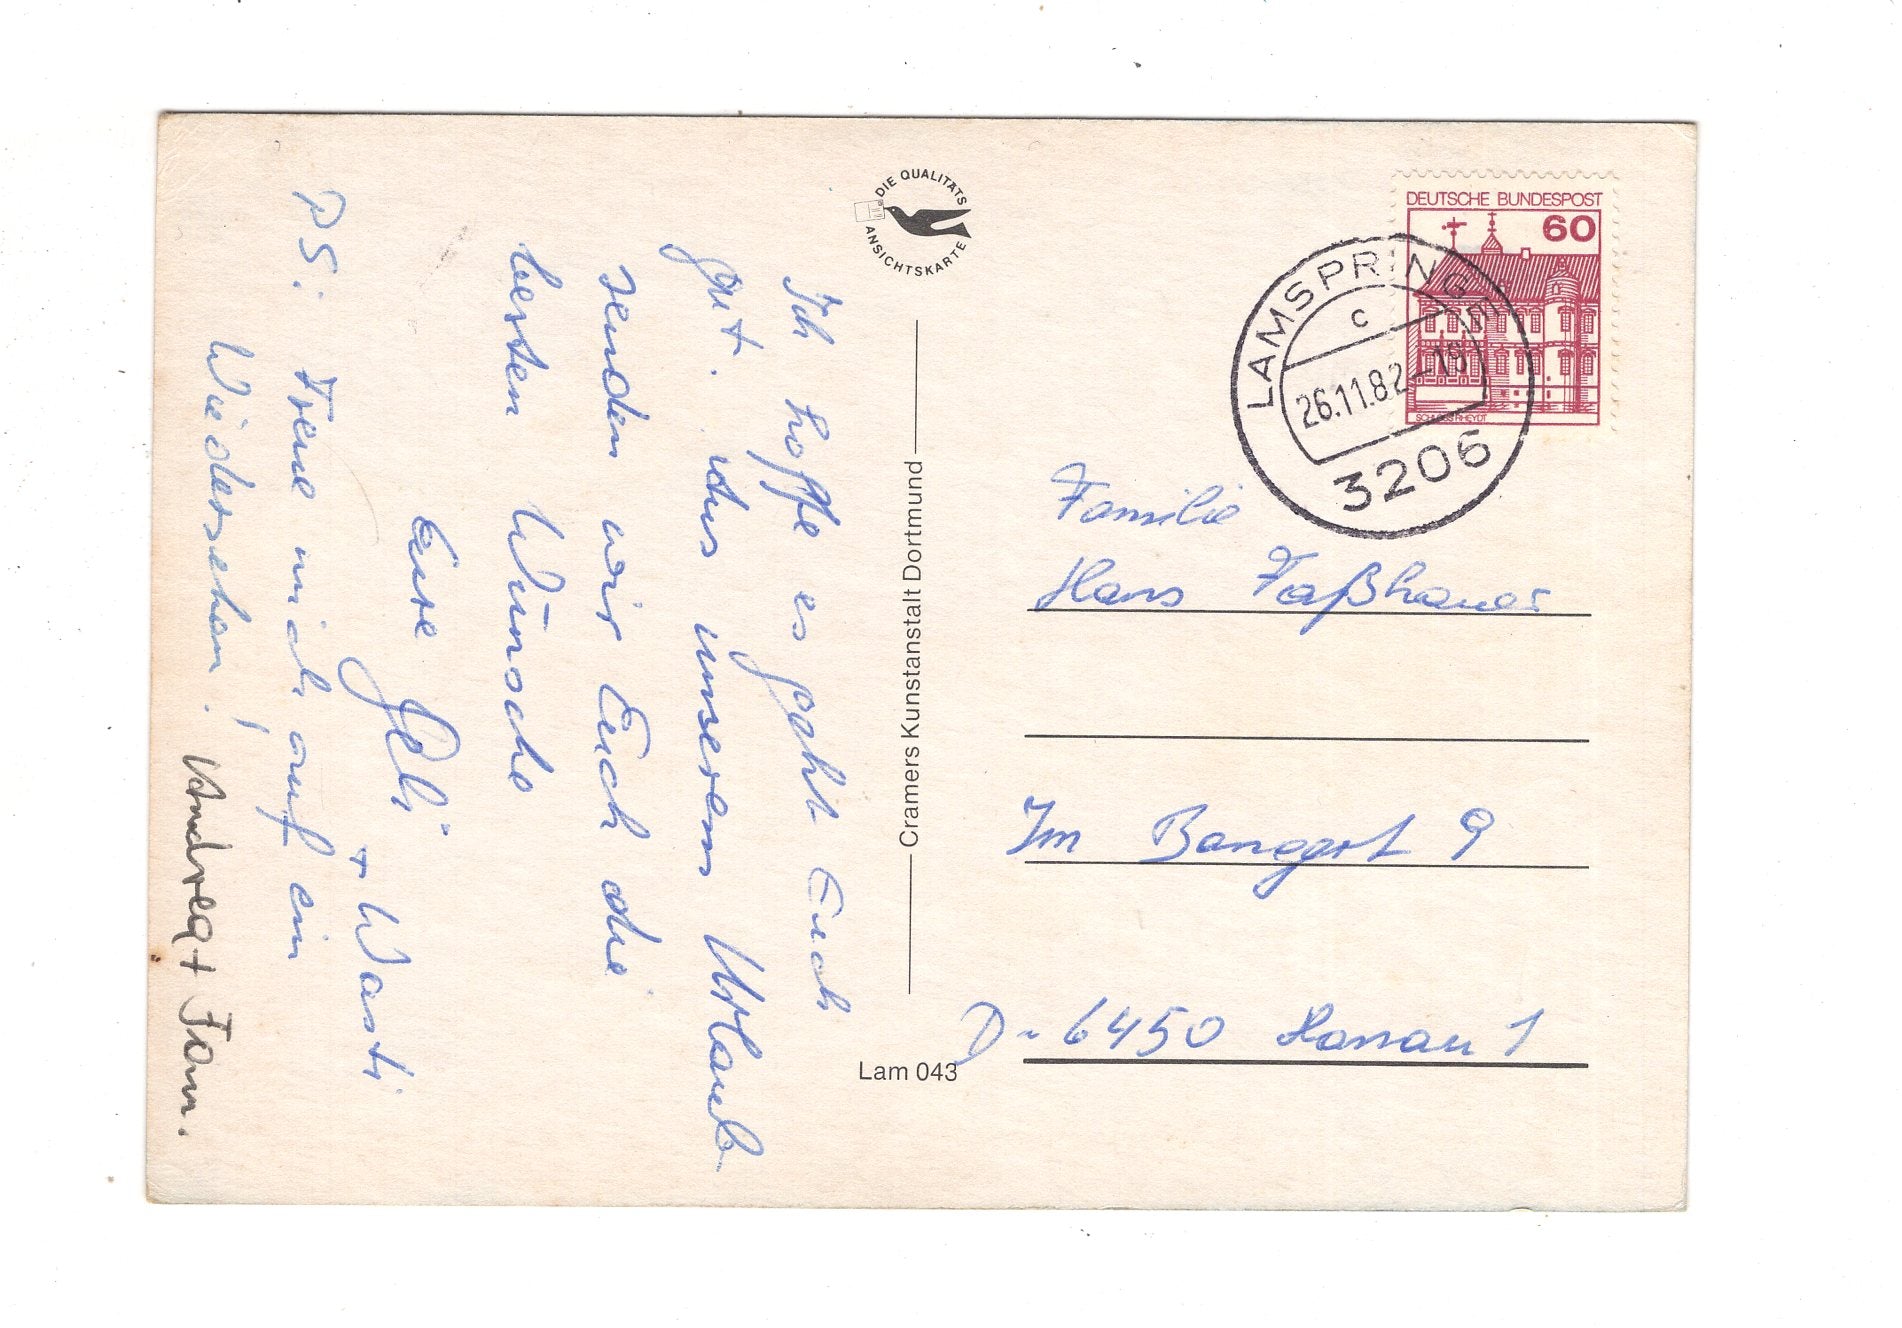 Ich hoffe es geht Euch
gut. Aus unserem Urlaub
senden wir Euch die
besten Wünsche
Eure
+ Wasti
PS: Freue mich auf ein
Wiedersehen!
Andrea + Fam.
DIE QUALITÄTS
ANSICHTSKARTE
Cramers Kunstanstalt Dortmund
Lam 043
DEUTSCHE BUNDESPOST
60
SCHLOSS RHEYDT
LAMSPRINGE
c
26.11.82-19
3206
Familie
Hans Faßhauer
Im Banggert 9
D-6450 Hanau 1